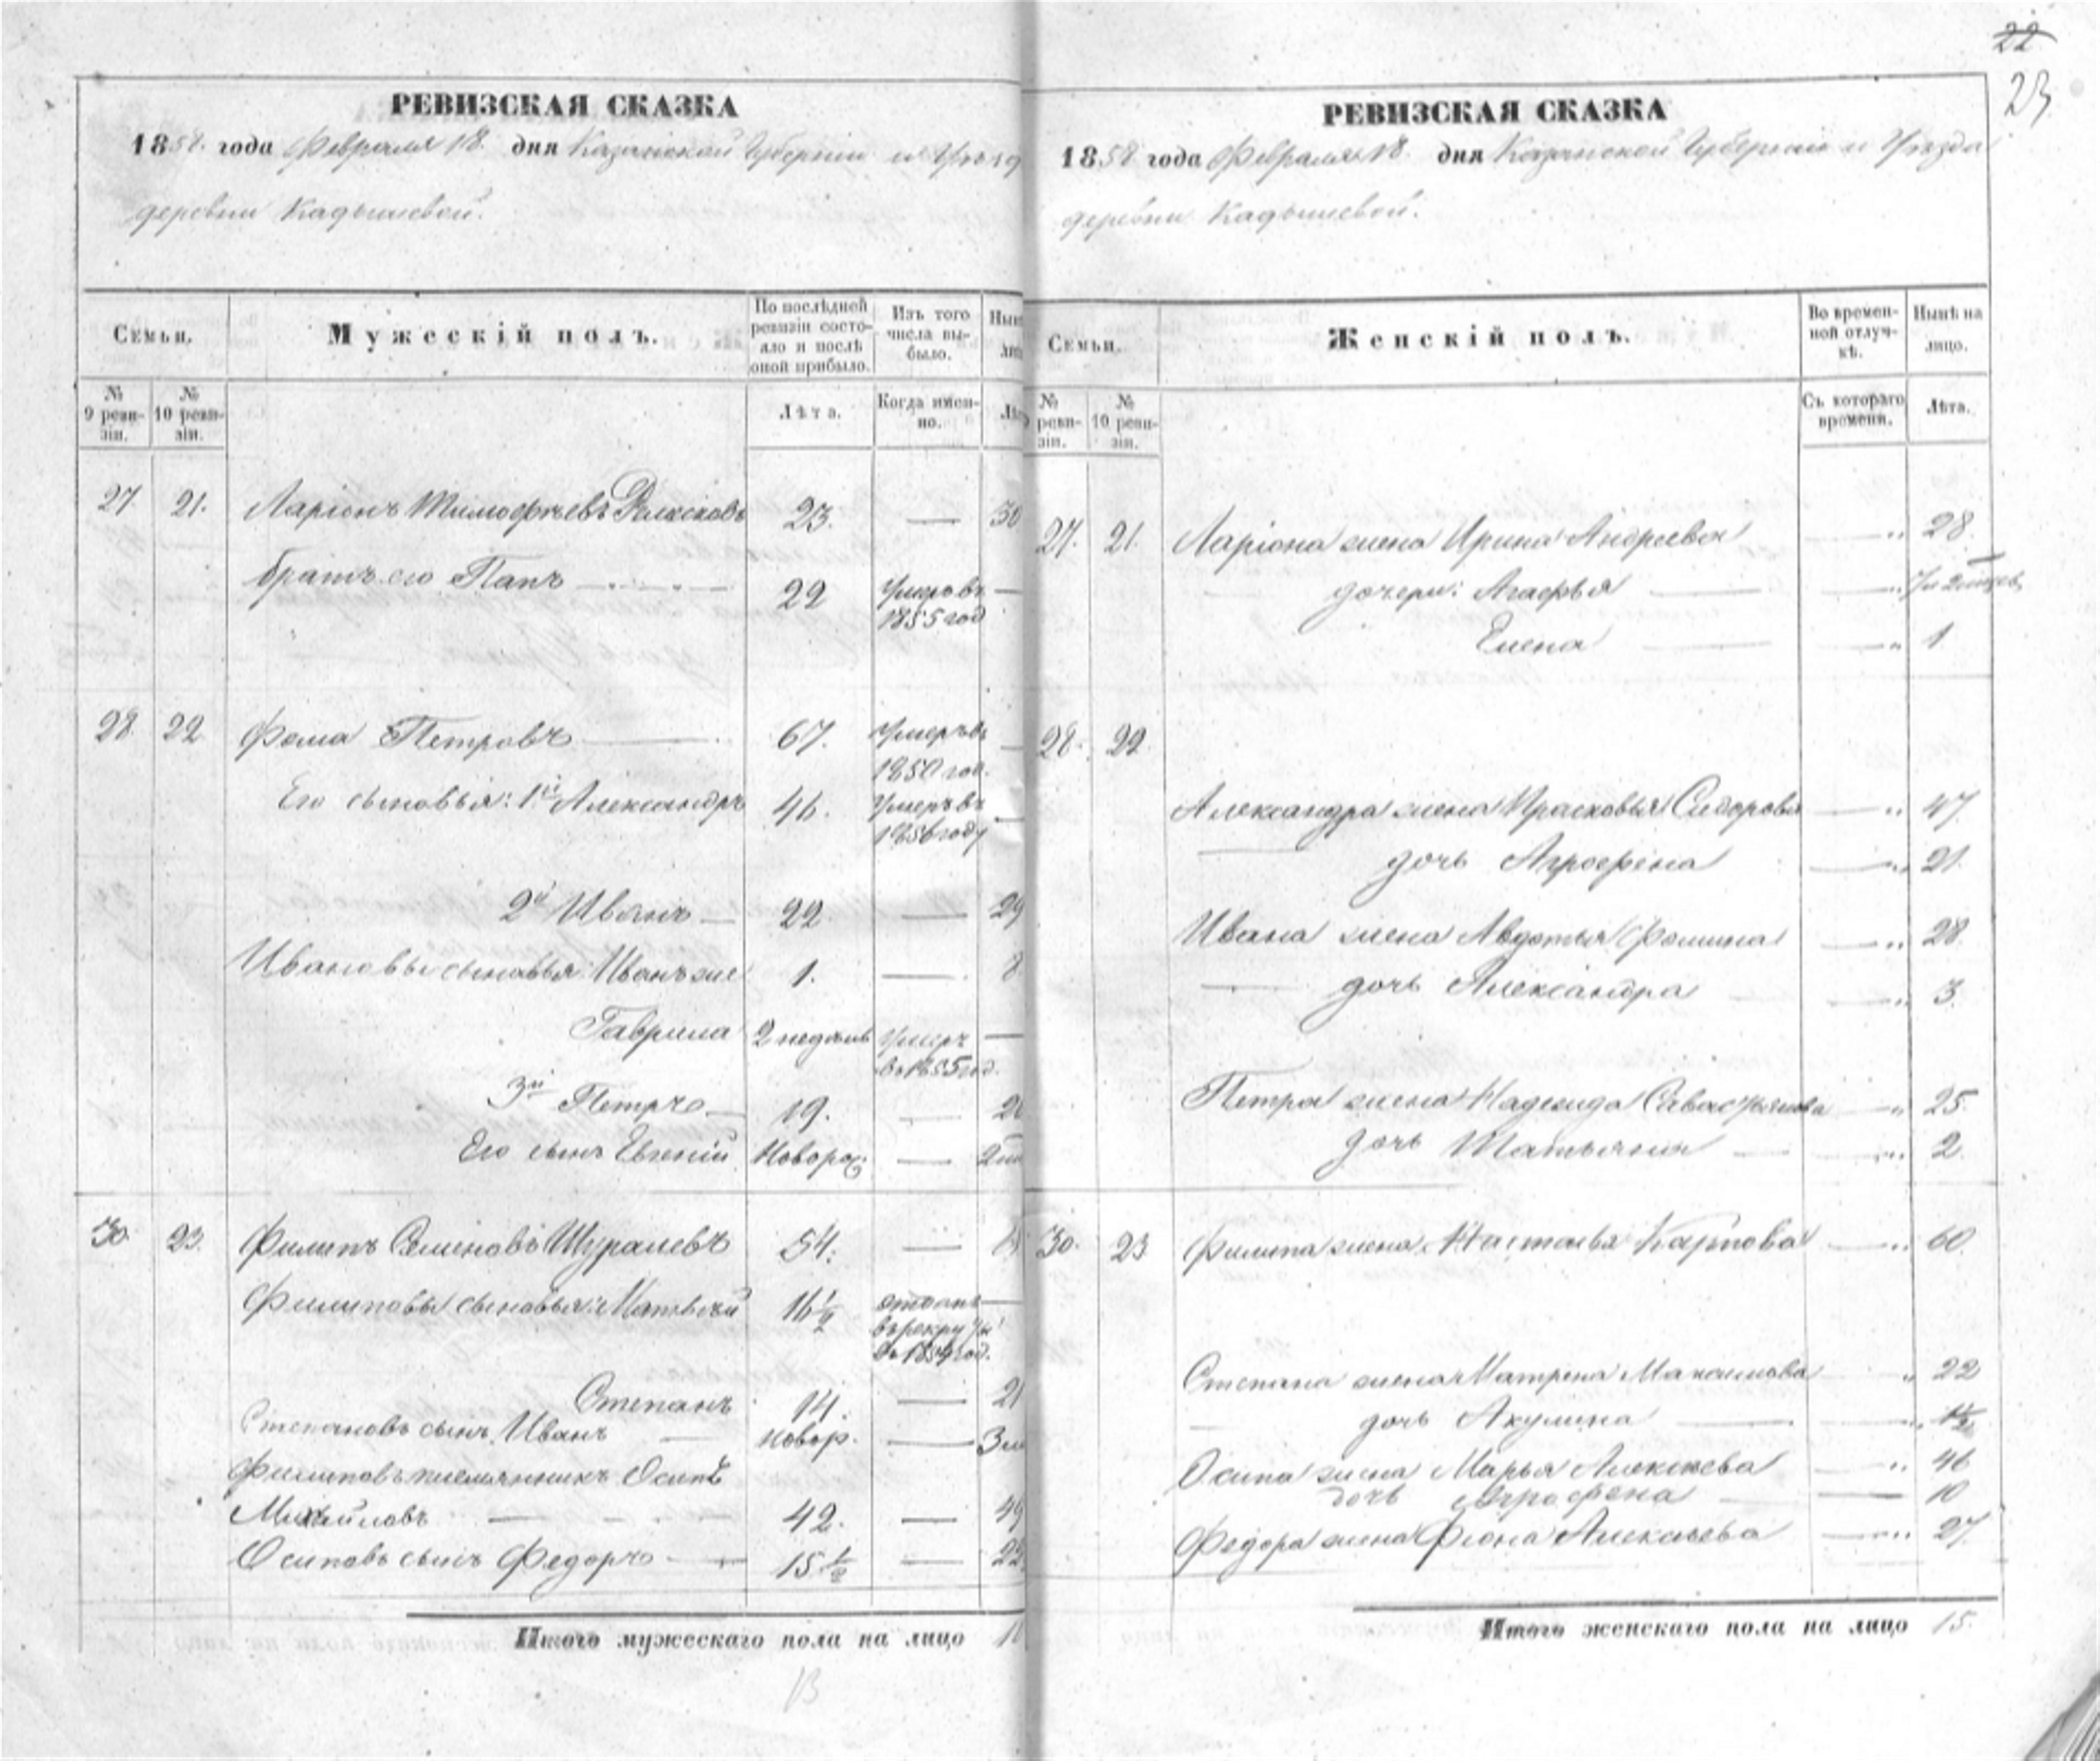 22
23
РЕВИЗСКАЯ СКАЗКА
1858 года Февраля 18 дня Казанской Губернии и Уѣзд
деревни Кадышевой.
Семьи.
Мужескій полъ.
По послѣдней
ревизіи состо-
яло и послѣ
оной прибыло.
Изъ того
числа вы-
было.
Нын
ли
№
9 реви-
зіи.
№
10 реви-
зіи.
Лѣта.
Когда имен-
но.
Лѣ
27. 21. Ларіонъ Тимофѣевъ 23. — 30
братъ его Папъ — 22 Умеръ въ —
1855 год
28 22 Фома Петровъ — 67. Умеръ въ —
1850 год.
Его сыновья: 1й Александръ 46. Умеръ въ —
1856 году
2й Иванъ — 22 — 29
Ивановы сыновья: Иванъ же 1. — 8
Гаврила 2 недѣль Умеръ —
въ 1855 год.
3й Петръ — 19. — 26
Его сынъ Евгеній Новорож: — 2 м
30. 23. Филипъ Семеновъ Шуралевъ 54. —
Филиповы сыновья: Матвѣй 16 1/2 отданъ —
въ рекруты
въ 1854 год.
Степанъ 14. — 21
Степановъ сынъ Иванъ — новор. — 3 м
Филиповъ племянникъ Осипъ
Михайловъ — 42. — 49
Осиповъ сынъ Федоръ — 15 1/2 — 22
Итого мужескаго пола на лицо 1
13
РЕВИЗСКАЯ СКАЗКА
1858 года Февраля 18 дня Казанской Губерніи и Уѣзда
деревни Кадышевой.
Семьи.
Женскій полъ.
Во времен-
ной отлуч-
кѣ.
Нынѣ на
лицо.
№
реви-
зіи.
№
10 реви-
зіи.
Съ котораго
времени.
Лѣта.
27. 21. Ларіона жена Ирина Андреева — " 28.
дочери: Агафья — " 7 и 2 мѣсяц
Елена — " 1
28. 22.
Александра жена Прасковья Сидорова — " 47.
— дочь Аграфена — " 21.
Ивана жена Авдотья Фомина — " 28.
— дочь Александра — " 3.
Петра жена Надежда Савастьянова — " 25.
дочь Татьяна — " 2.
30. 23 Филипа жена Настасья Карпова — " 60.
Степана жена Матрена Максимова " 22
— дочь Акулина — "
Осипа жена Марья Алексѣева — " 46
дочь Аграфена — 10
Федора жена Фіона Алексѣева — " 27.
Итого женскаго пола на лицо 15.